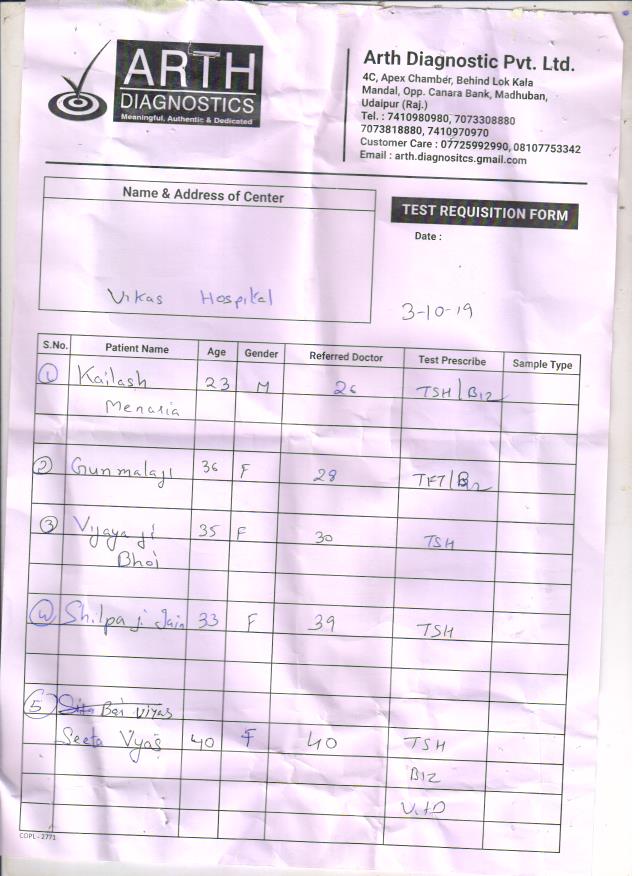 ARTH
DIAGNOSTICS
Meaningful, Authentic & Dedicated
Arth Diagnostic Pvt. Ltd.
4C, Apex Chamber, Behind Lok Kala
Mandal, Opp. Canara Bank, Madhuban,
Udaipur (Raj.)
Tel. : 7410980980, 7073308880
7073818880, 7410970970
Customer Care : 07725992990, 08107753342
Email : arth.diagnositcs.gmail.com
Name & Address of Center
Vikas Hospital
TEST REQUISITION FORM
Date :
3-10-19
S.No. Patient Name Age Gender Referred Doctor Test Prescribe Sample Type
1 Kailash 23 M 26 TSH/B12
Menaria
2 Gunmalaji 36 F 28 TFT/B12
3 Vijaya ji 35 F 30 TSH
Bhoi
4 Shilpa ji Jain 33 F 39 TSH
5 Sita Bai Viyas
Seeta Vyas 40 F 40 TSH
B12
Vit D
COPL - 2771